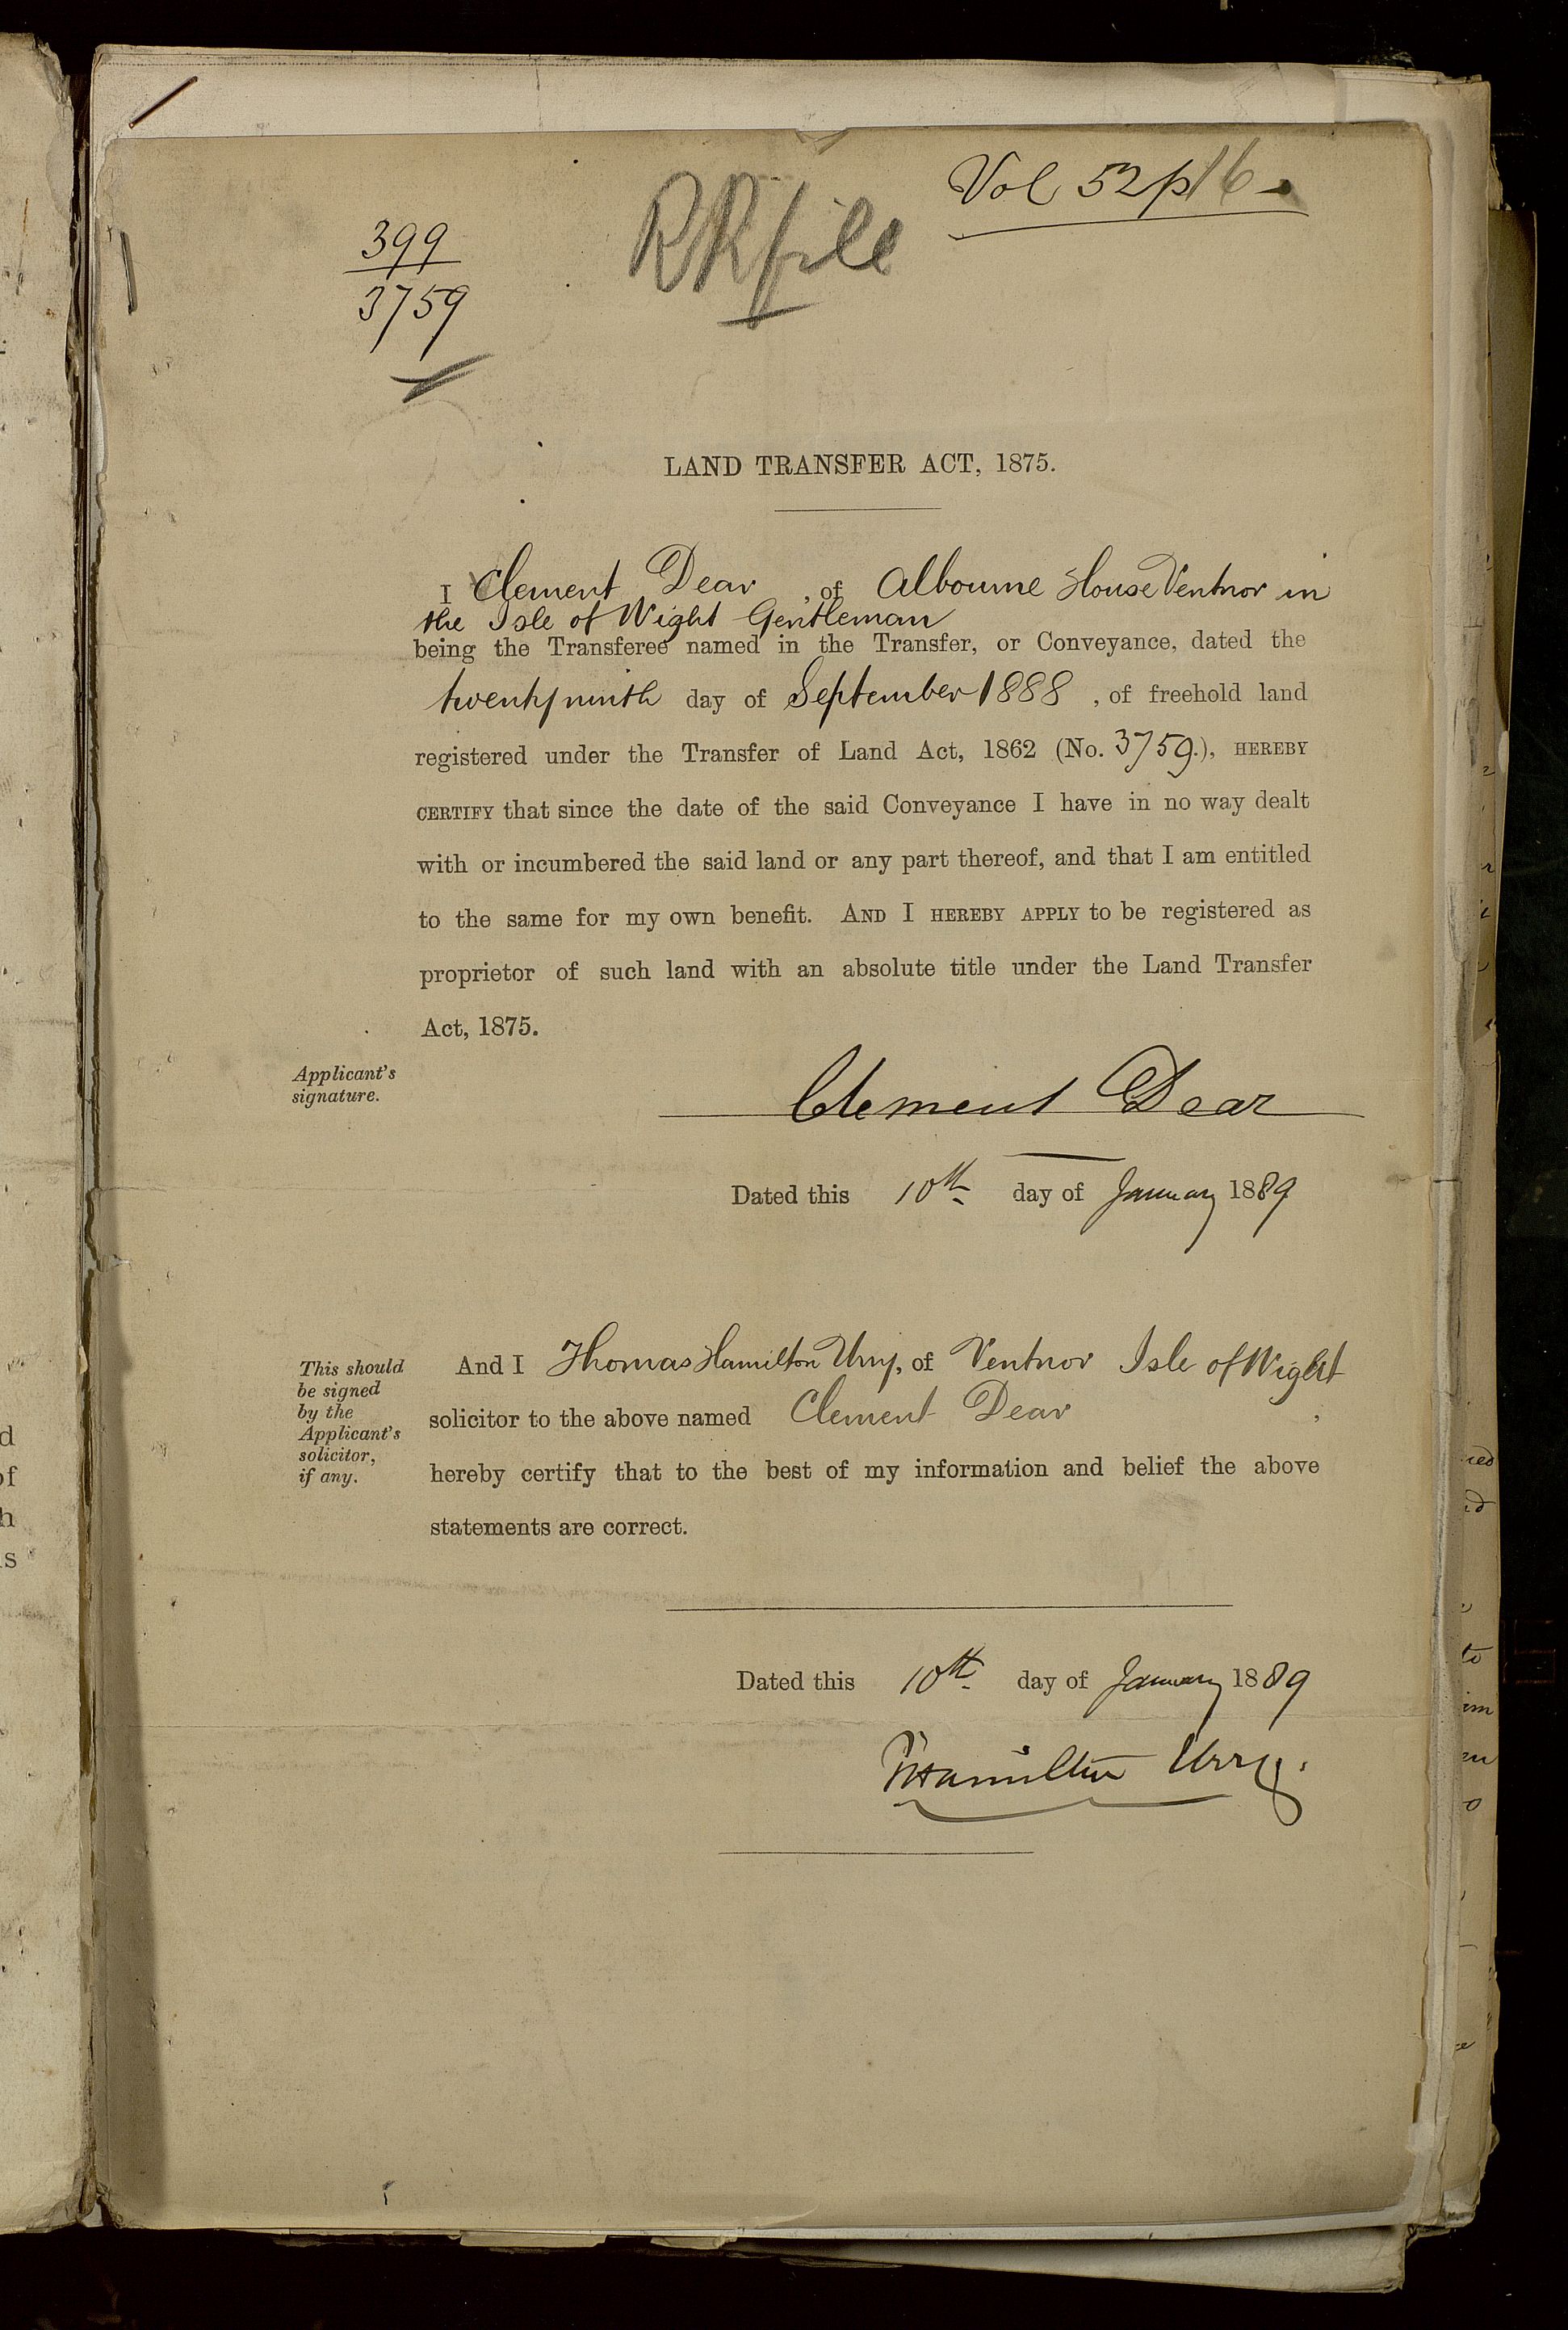 Vol 52 p 16
399
3759
RR file
LAND TRANSFER ACT, 1875.
I Clement Dear, of Albourne House Ventnor in
the Isle of Wight Gentleman
being the Transferee named in the Transfer, or Conveyance, dated the
twenty ninth day of September 1888, of freehold land
registered under the Transfer of Land Act, 1862 (No. 3759.), HEREBY
CERTIFY that since the date of the said Conveyance I have in no way dealt
with or incumbered the said land or any part thereof, and that I am entitled
to the same for my own benefit. AND I HEREBY APPLY to be registered as
proprietor of such land with an absolute title under the Land Transfer
Act, 1875.
Applicant's
signature.
Clement Dear
Dated this 10th day of January 1889
This should
be signed
by the
Applicant's
solicitor,
if any.
And I Thomas Hamilton Urry, of Ventnor Isle of Wight
solicitor to the above named Clement Dear,
hereby certify that to the best of my information and belief the above
statements are correct.
Dated this 10th day of January 1889
T Hamilton Urry.